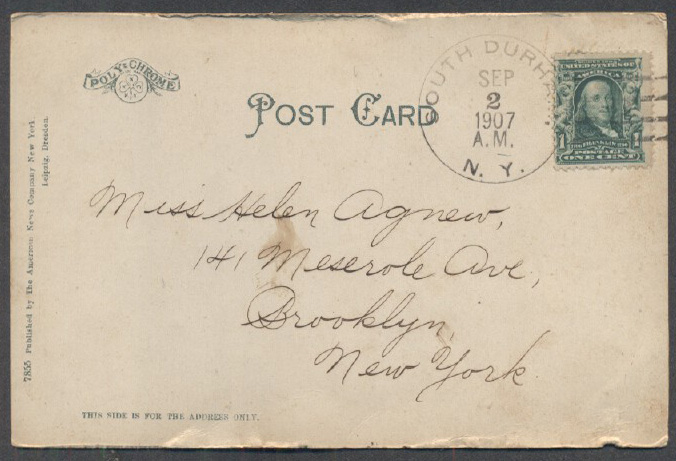 POLY-CHROME
POST CARD
SOUTH DURHAM
SEP
2
1907
A.M.
N. Y.
UNITED STATES OF
AMERICA
1 FRANKLIN 1
POSTAGE
ONE CENT
Miss Helen Agnew,
141 Meserole Ave,
Brooklyn,
New York.
7855 Published by The American News Company New York
Leipzig, Dresden.
THIS SIDE IS FOR THE ADDRESS ONLY.